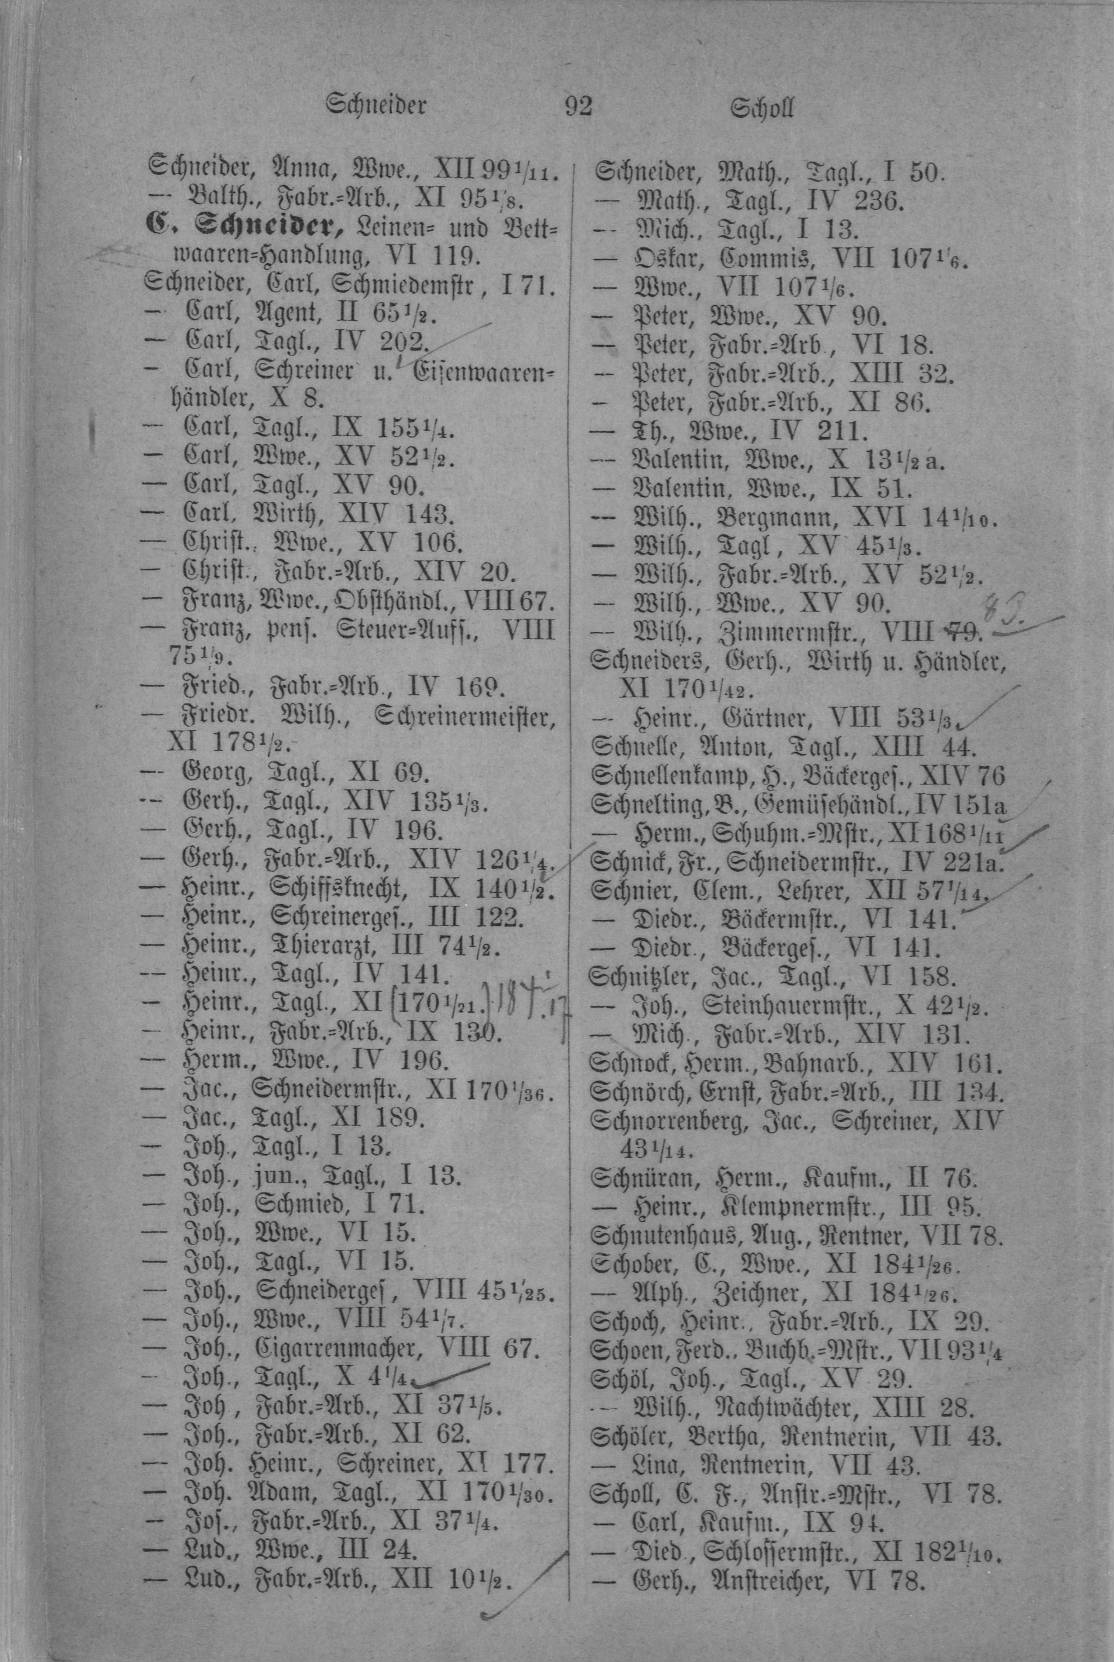 Schneider 92 Scholl
Schneider, Anna, Wwe., XII 99 1/11.
— Balth., Fabr.=Arb., XI 95 1/8.
C. Schneider, Leinen= und Bett=
waaren=Handlung, VI 119.
Schneider, Carl, Schmiedemstr, I 71.
— Carl, Agent, II 65 1/2.
— Carl, Tagl., IV 202.
— Carl, Schreiner u. Eisenwaaren=
händler, X 8.
— Carl, Tagl., IX 155 1/4.
— Carl, Wwe., XV 52 1/2.
— Carl, Tagl., XV 90.
— Carl, Wirth, XIV 143.
— Christ., Wwe., XV 106.
— Christ., Fabr.=Arb., XIV 20.
— Franz, Wwe., Obsthändl., VIII 67.
— Franz, pens. Steuer=Aufs., VIII
75 1/9.
— Fried., Fabr.=Arb., IV 169.
— Friedr. Wilh., Schreinermeister,
XI 178 1/2.
— Georg, Tagl., XI 69.
— Gerh., Tagl., XIV 135 1/3.
— Gerh., Tagl., IV 196.
— Gerh., Fabr.=Arb., XIV 126 1/4.
— Heinr., Schiffsknecht, IX 140 1/2.
— Heinr., Schreinerges., III 122.
— Heinr., Thierarzt, III 74 1/2.
— Heinr., Tagl., IV 141.
— Heinr., Tagl., XI (170 1/21.) 184 1/17
— Heinr., Fabr.=Arb., IX 130.
— Herm., Wwe., IV 196.
— Jac., Schneidermstr., XI 170 1/36.
— Jac., Tagl., XI 189.
— Joh., Tagl., I 13.
— Joh., jun., Tagl., I 13.
— Joh., Schmied, I 71.
— Joh., Wwe., VI 15.
— Joh., Tagl., VI 15.
— Joh., Schneiderges, VIII 45 1/25.
— Joh., Wwe., VIII 54 1/7.
— Joh., Cigarrenmacher, VIII 67.
— Joh., Tagl., X 4 1/4.
— Joh, Fabr.=Arb., XI 37 1/5.
— Joh., Fabr.=Arb., XI 62.
— Joh. Heinr., Schreiner, XI 177.
— Joh. Adam, Tagl., XI 170 1/30.
— Jos., Fabr.=Arb., XI 37 1/4.
— Lud., Wwe., III 24.
— Lud., Fabr.=Arb., XII 10 1/2.
Schneider, Math., Tagl., I 50.
— Math., Tagl., IV 236.
— Mich., Tagl., I 13.
— Oskar, Commis, VII 107 1/6.
— Wwe., VII 107 1/6.
— Peter, Wwe., XV 90.
— Peter, Fabr.=Arb., VI 18.
— Peter, Fabr.=Arb., XIII 32.
— Peter, Fabr.=Arb., XI 86.
— Th., Wwe., IV 211.
— Valentin, Wwe., X 13 1/2 a.
— Valentin, Wwe., IX 51.
— Wilh., Bergmann, XVI 14 1/10.
— Wilh., Tagl, XV 45 1/3.
— Wilh., Fabr.=Arb., XV 52 1/2.
— Wilh., Wwe., XV 90.
— Wilh., Zimmermstr., VIII 79. 83.
Schneiders, Gerh., Wirth u. Händler,
XI 170 1/42.
— Heinr., Gärtner, VIII 53 1/3.
Schnelle, Anton, Tagl., XIII 44.
Schnellenkamp, H., Bäckerges., XIV 76
Schnelting, B., Gemüsehändl., IV 151a
— Herm., Schuhm.=Mstr., XI 168 1/11
Schnick, Fr., Schneidermstr., IV 221a.
Schnier, Clem., Lehrer, XII 57 1/14.
— Diedr., Bäckermstr., VI 141.
— Diedr., Bäckerges., VI 141.
Schnitzler, Jac., Tagl., VI 158.
— Joh., Steinhauermstr., X 42 1/2.
— Mich., Fabr.=Arb., XIV 131.
Schnock, Herm., Bahnarb., XIV 161.
Schnörch, Ernst, Fabr.=Arb., III 134.
Schnorrenberg, Jac., Schreiner, XIV
43 1/14.
Schnüran, Herm., Kaufm., II 76.
— Heinr., Klempnermstr., III 95.
Schnutenhaus, Aug., Rentner, VII 78.
Schober, C., Wwe., XI 184 1/26.
— Alph., Zeichner, XI 184 1/26.
Schoch, Heinr., Fabr.=Arb., IX 29.
Schoen, Ferd., Buchb.=Mstr., VII 93 1/4
Schöl, Joh., Tagl., XV 29.
— Wilh., Nachtwächter, XIII 28.
Schöler, Bertha, Rentnerin, VII 43.
— Lina, Rentnerin, VII 43.
Scholl, C. F., Anstr.=Mstr., VI 78.
— Carl, Kaufm., IX 94.
— Died., Schlossermstr., XI 182 1/10.
— Gerh., Anstreicher, VI 78.